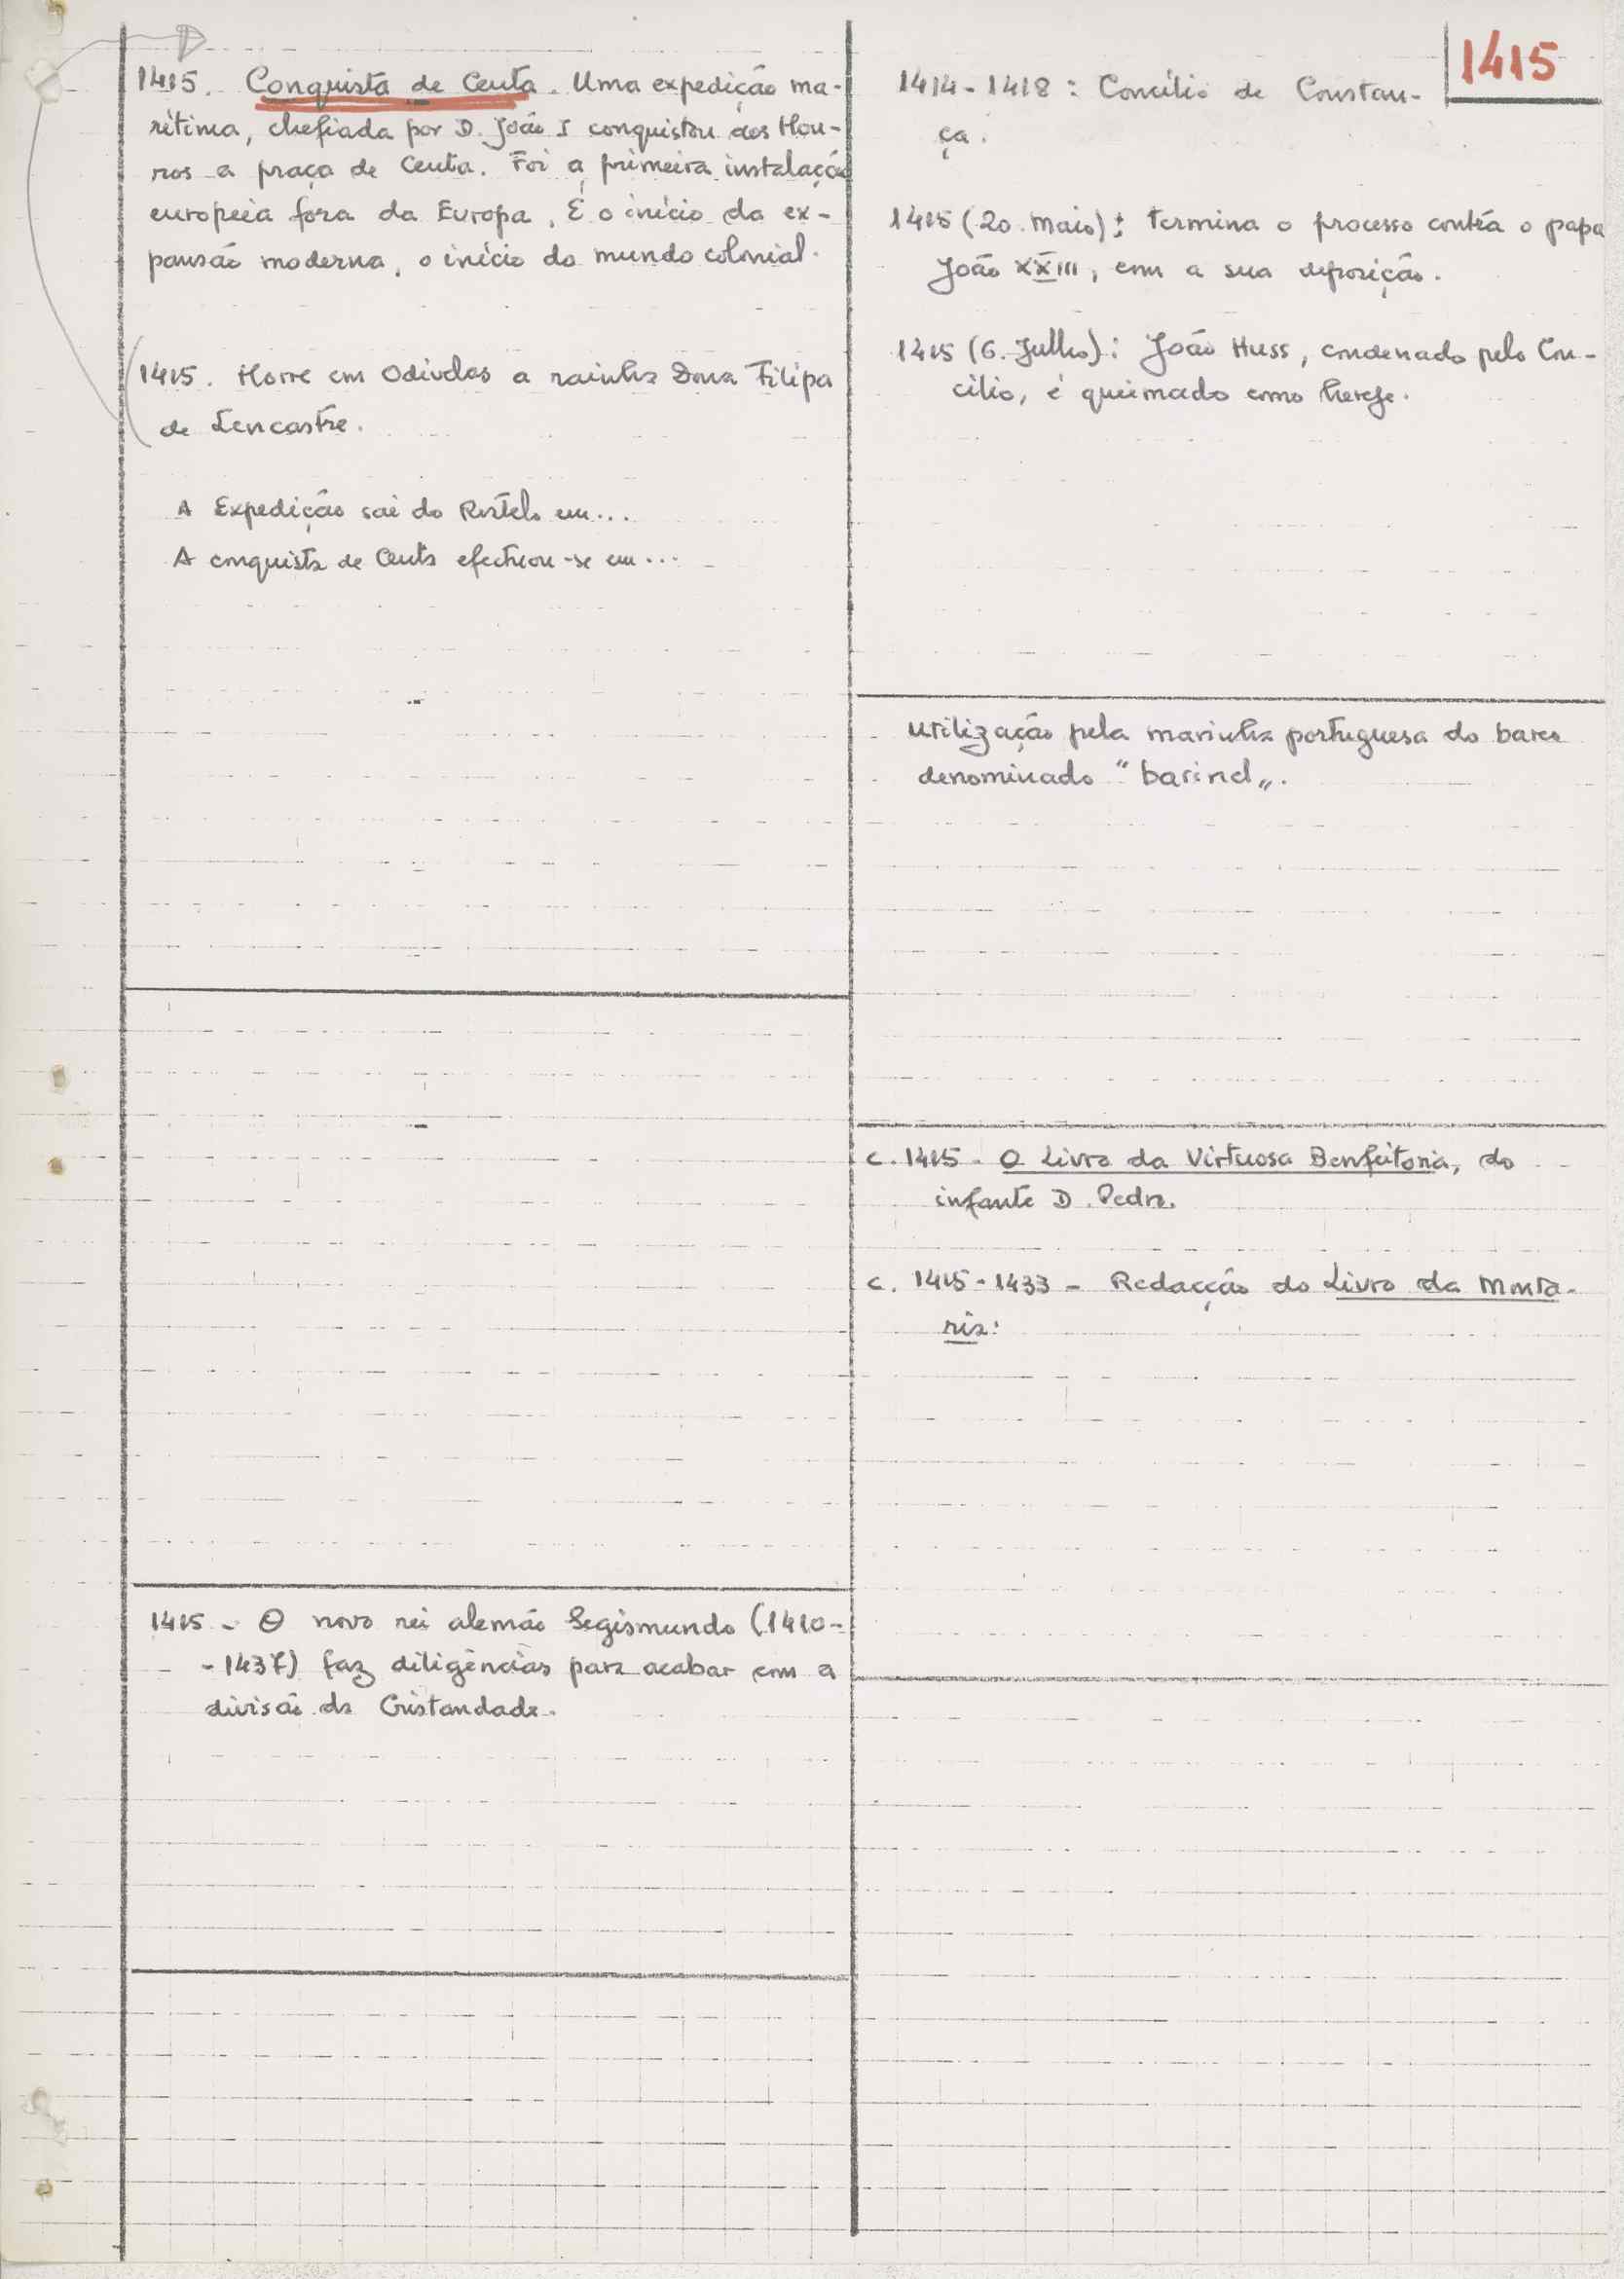 1415
1415. Conquista de Ceuta. Uma expedição ma-
rítima, chefiada por D. João I conquistou aos Mou-
ros a praça de Ceuta. Foi a primeira instalação
europeia fora da Europa. É o início da ex-
pansão moderna, o início do mundo colonial.
(1415. Morre em Odivelas a rainha Dona Filipa
de Lencastre.
A Expedição sai do Restelo em...
A conquista de Ceuta efectuou-se em...
1415 - O novo rei alemão Segismundo (1410-
-1437) faz diligências para acabar com a
divisão da Cristandade.
1414-1418: Concílio de Constan-
ça.
1415 (20. Maio): termina o processo contra o papa
João XXIII, com a sua deposição.
1415 (6. Julho): João Huss, condenado pelo Con-
cílio, é queimado como herege.
Utilização pela marinha portuguesa do barco
denominado "barinel".
c. 1415 - O Livro da Virtuosa Benfeitoria, do
infante D. Pedro.
c. 1415-1433 - Redacção do Livro da Monta-
ria.